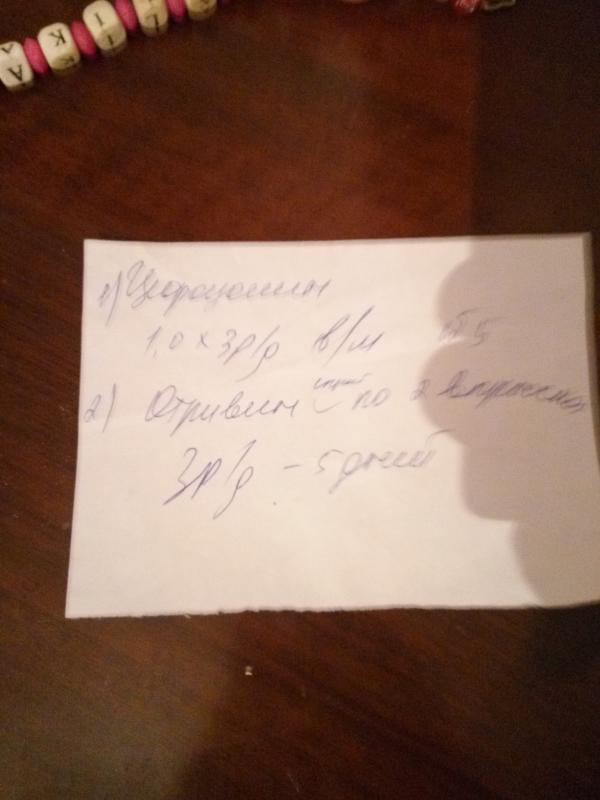 1) Цефазолин
1,0 х 3р/д в/м № 5
2) Отривин спрей по 2 впрыска
3р/д – 5 дней